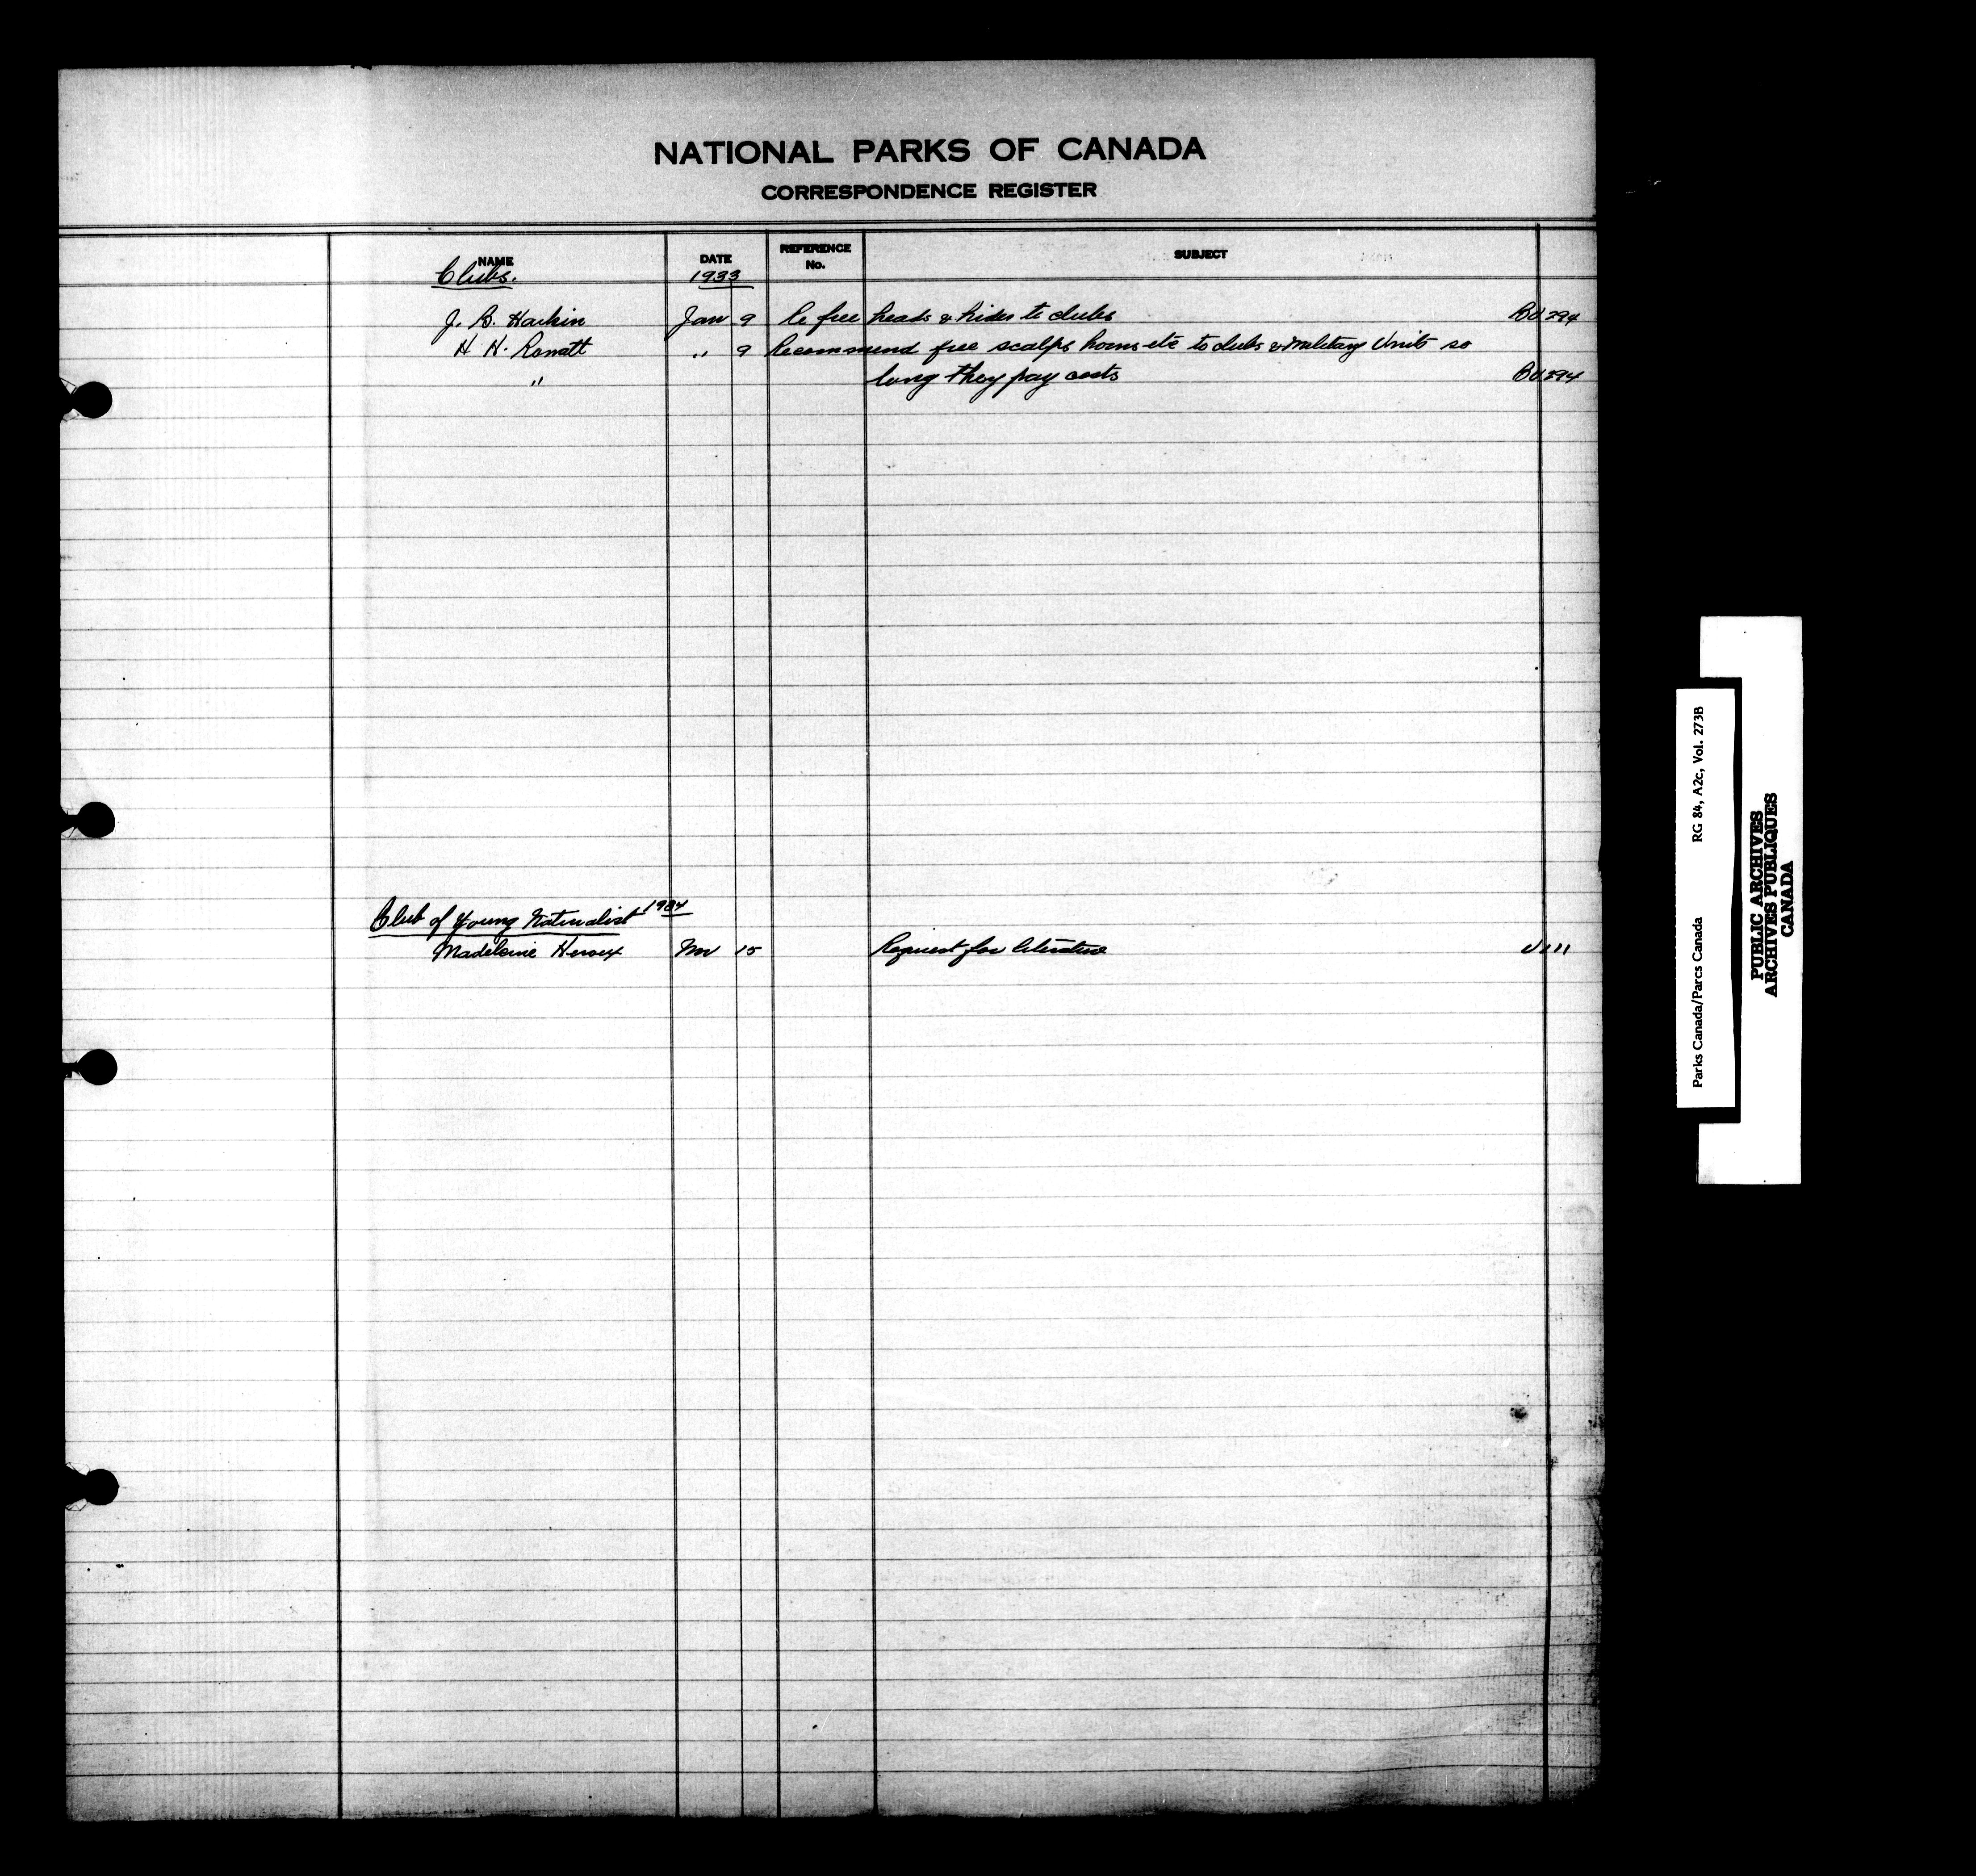 NATIONAL PARKS OF CANADA
CORRESPONDENCE REGISTER
NAME DATE REFERENCE No. SUBJECT
Clubs. 1933
J. B. Harkin Jan 9 Re free heads & hides to clubs BU294
H. H. " 9 Recommend free scalps horns etc to clubs & Military Units so
" long they pay costs BU294
Club of Young Naturalist 1934
Madeleine Heroux 15 Request for literature U111
Parks Canada/Parcs Canada RG 84, A2c, Vol. 273B
PUBLIC ARCHIVES
ARCHIVES PUBLIQUES
CANADA